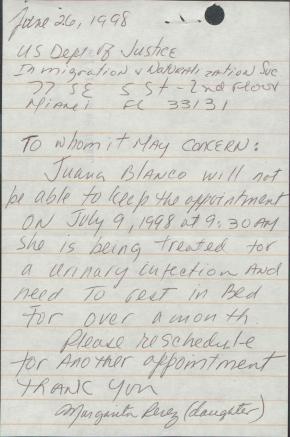 June 26, 1998
US Dept of Justice
Inmigration & Naturalization Svc
77 SE 5 St - 2nd Floor
Miami FL 33131
To whom it May Concern:
Juana Blanco will not
be able to keep the appointment
on July 9, 1998 at 9:30 AM
she is being treated for
a urinary infection and
need to rest in Bed
for over a month.
Please reschedule
for Another appointment
Thank you
Margarita Perez (daughter)